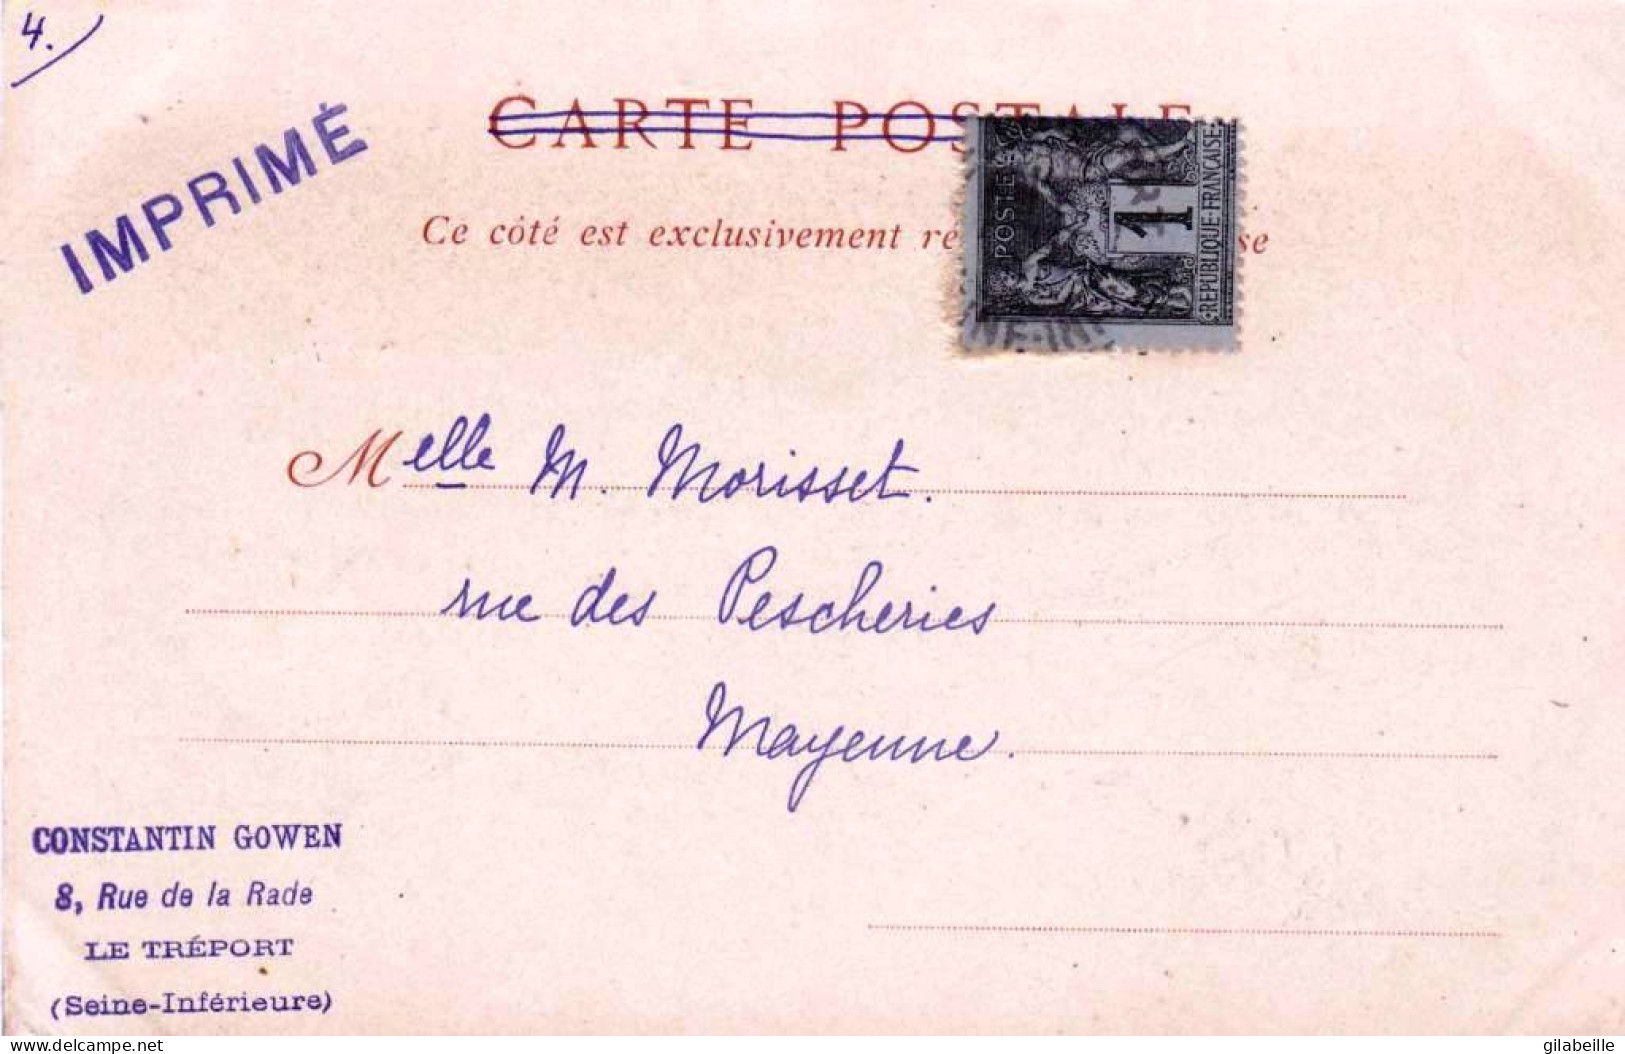 4.
IMPRIMÉ
CARTE POSTALE
Ce côté est exclusivement ré se
POSTES
1
REPUBLIQUE·FRANÇAISE
NE-IN
Melle M. Morisset.
rue des Pescheries
Mayenne.
CONSTANTIN GOWEN
8, Rue de la Rade
LE TRÉPORT
(Seine-Inférieure)
delcampe.net
gilabeille